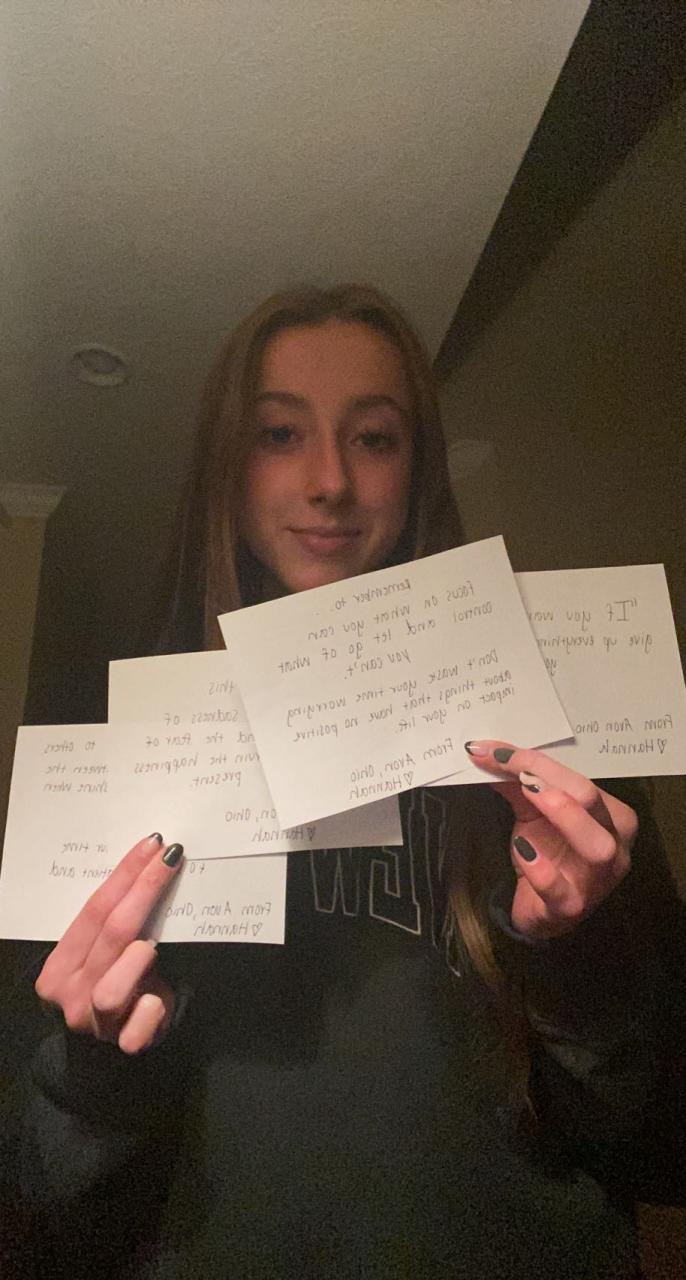 Remember to:
Focus on what you can
control and let go of what
you can't.
Don't waste your time worrying
about things that have no positive
impact on your life.
From Avon, Ohio
♡Hannah
"If you
give up
From Avon Ohio
♡Hannah
this
sadness of
the fear of
the happiness
present.
Ohio
♡Hannah
to others
the
shine when
time
and
From Avon, Ohio
♡Hannah